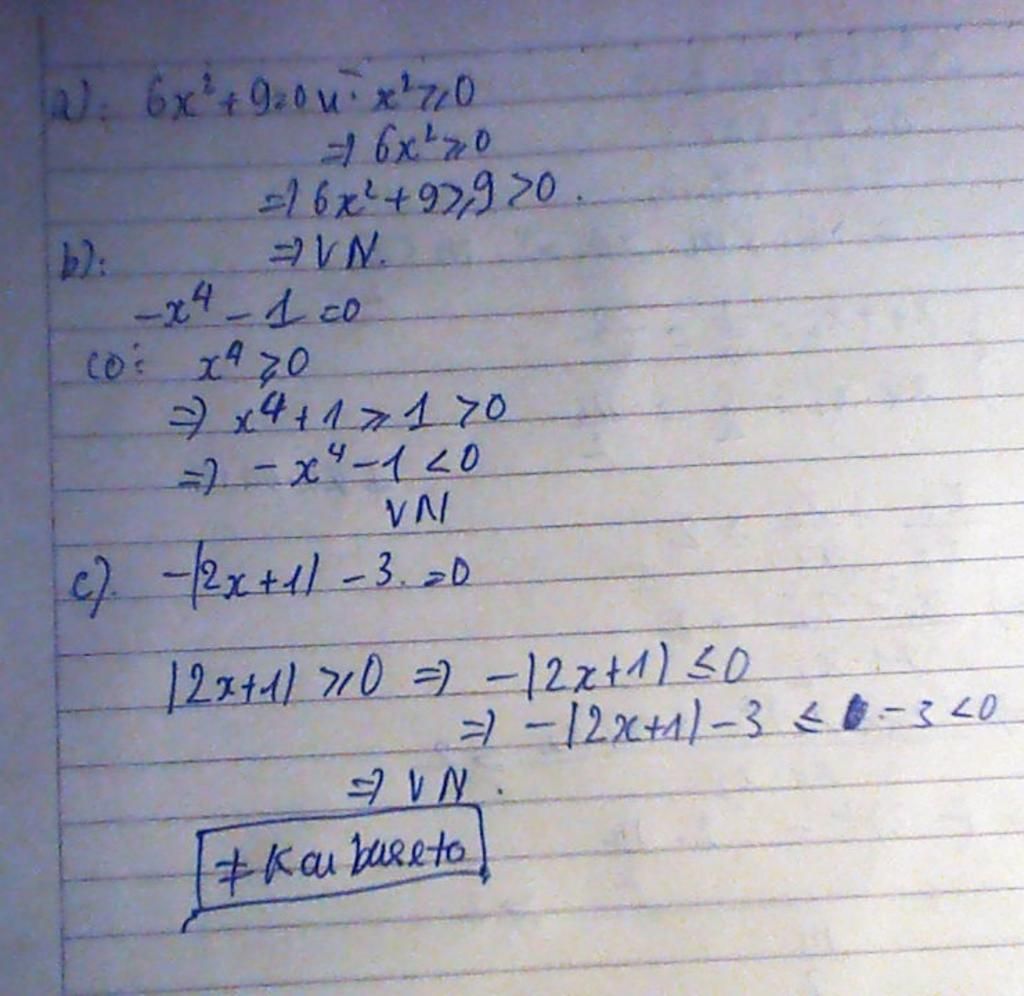 a): 6x² + 9 = 0 vì x² ≥ 0
=> 6x² ≥ 0
=> 6x² + 9 ≥ 9 > 0.
b): => VN.
-x⁴ - 1 = 0
có: x⁴ ≥ 0
=> x⁴ + 1 ≥ 1 > 0
=> -x⁴ - 1 < 0
VN
c). -|2x+1| - 3 = 0
|2x+1| ≥ 0 => -|2x+1| ≤ 0
=> -|2x+1| - 3 ≤ -3 < 0
=> VN.